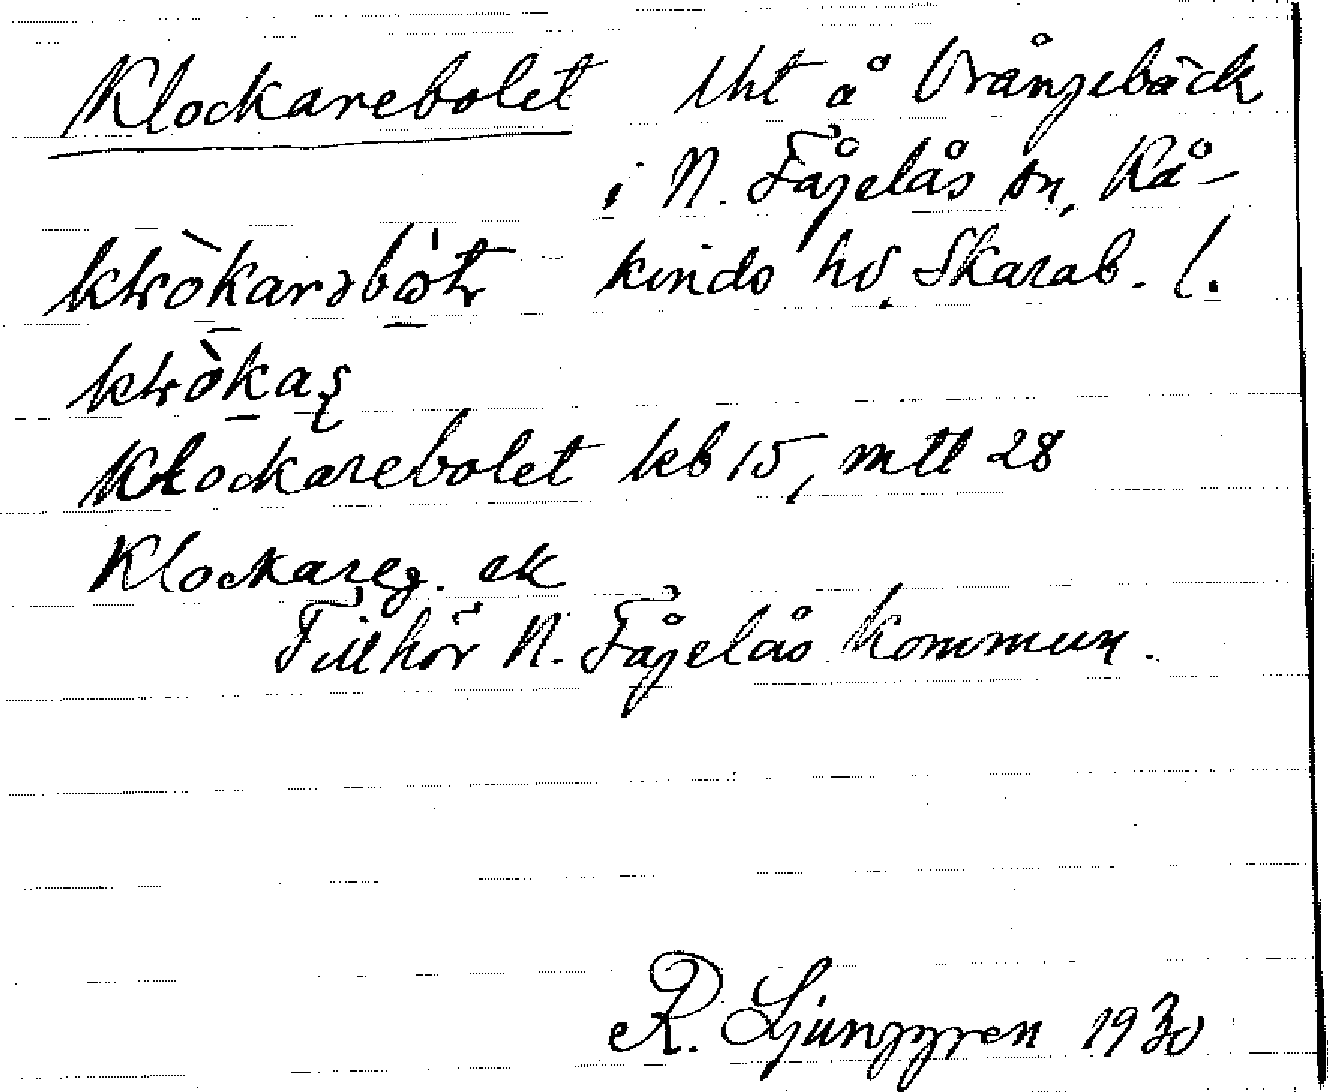 Klockarebolet lht å Vrångebäck
i N. Fågelås sn, Kå-
kinds hd. Skarab. l.
Klockarebolet kb 15, mtl 28
Klockareg. ek
Tillhör N. Fågelås kommun.
R. Ljunggren 1930